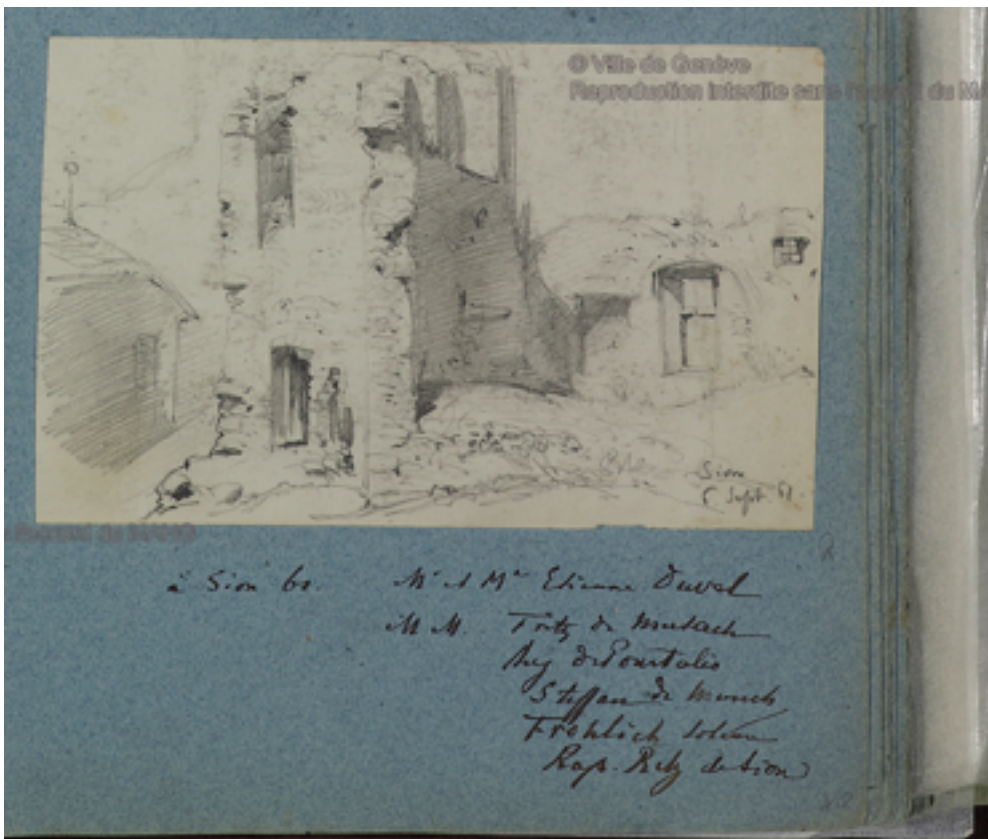 © Ville de Genève
Reproduction interdite sans l'accord du M
Sion
6 Sept 61.
à Sion 61. Mr et Me Etienne Duval
M M. Fritz de
Aug de Pourtalès
Steffan de Munich
Frohlich
Rap. Ritz de Sion